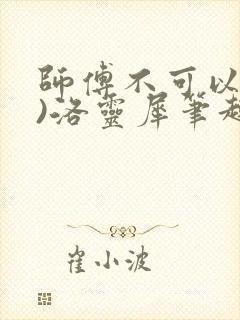 師傅不可以
)洛靈犀筆趣
崔小波